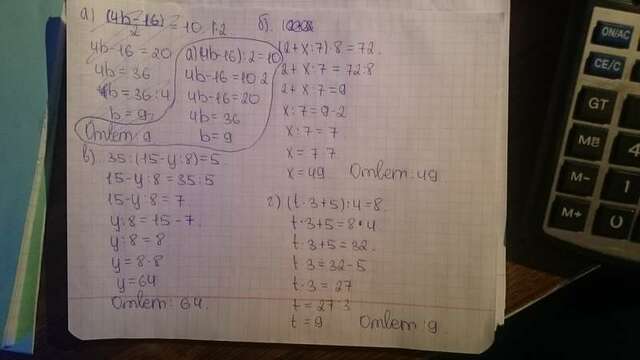 а) (4b-16)/2 = 10 |·2
4b-16 = 20
4b = 36
b = 36:4
b = 9
Ответ: 9
а) (4b-16):2=10
4b-16 = 10·2
4b-16 = 20
4b = 36
b = 9
б)
(2+x:7)·8 = 72
2+x:7 = 72:8
2+x:7 = 9
x:7 = 9-2
x:7 = 7
x = 7·7
x = 49 Ответ: 49
в) 35:(15-y:8)=5
15-y:8 = 35:5
15-y:8 = 7
y:8 = 15-7
y:8 = 8
y = 8·8
y = 64
Ответ: 64.
г) (t·3+5):4=8
t·3+5 = 8·4
t·3+5 = 32
t·3 = 32-5
t·3 = 27
t = 27:3
t = 9 Ответ: 9.
ON/AC
CE/C
GT
MR
M-
M+
7
4
1
0